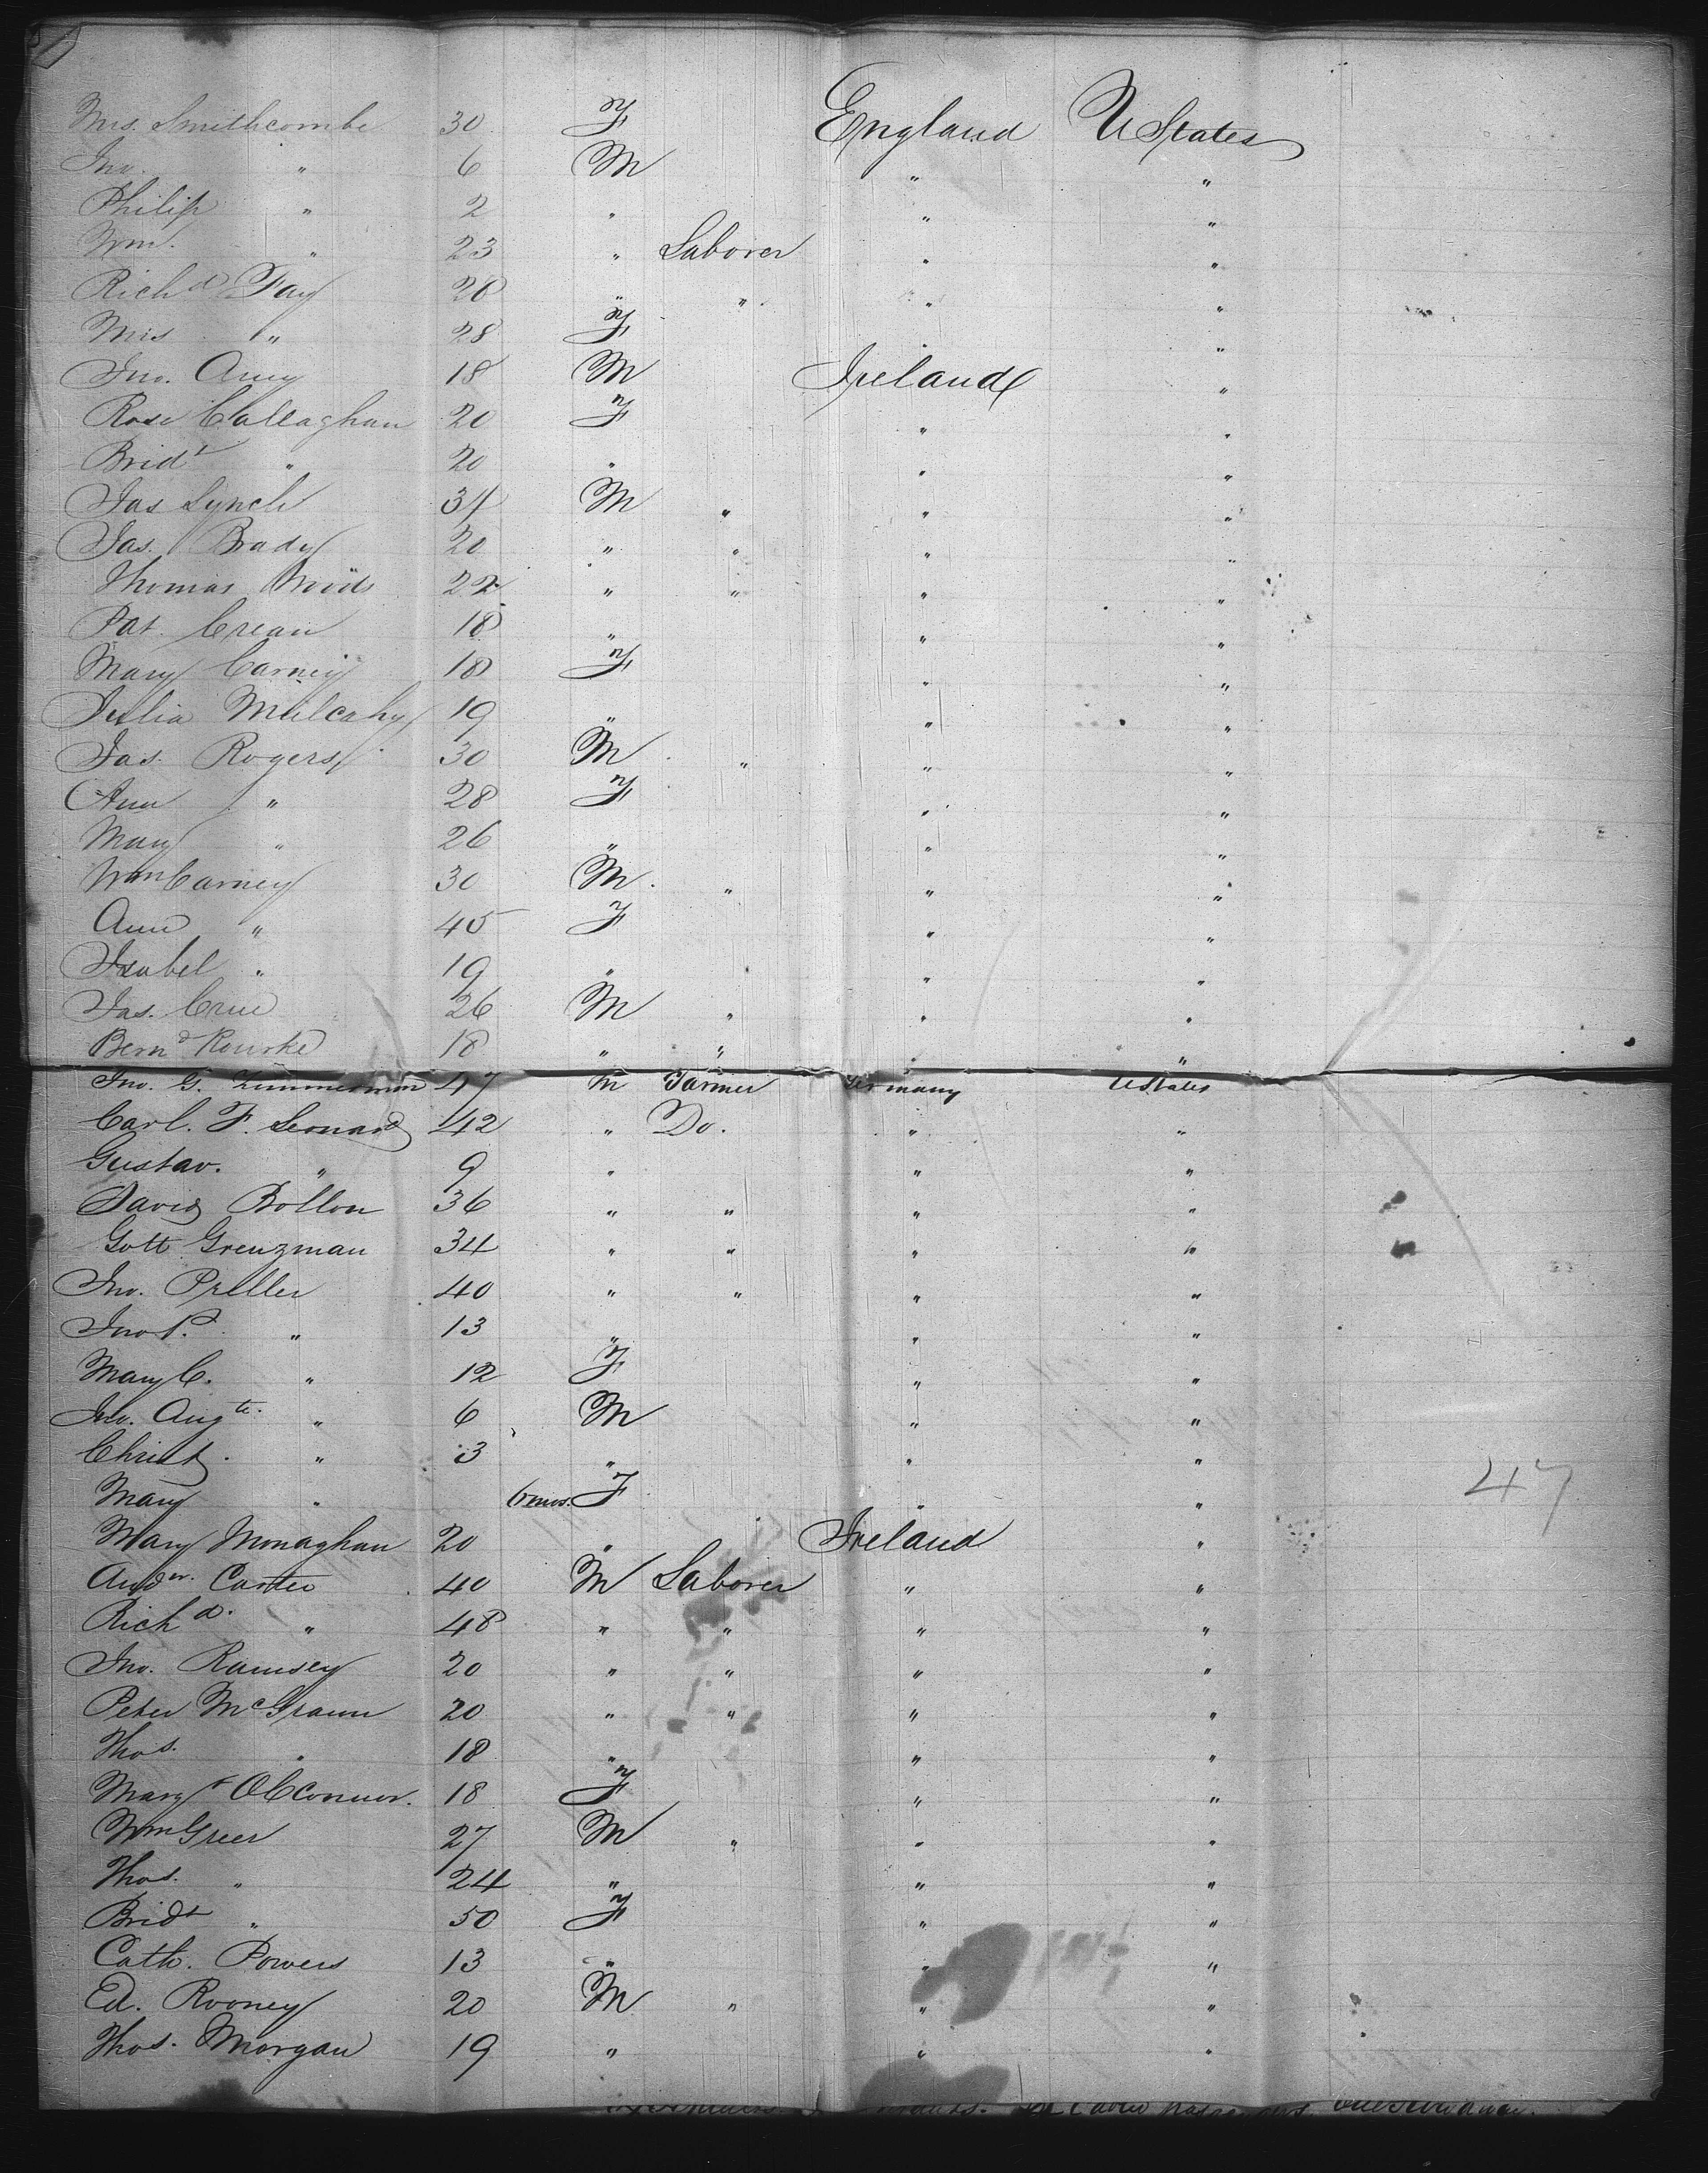 Mrs. Smithcombe 30 F England UStates
Jno. " 6 M " "
Philip " 2 " " "
Wm. " 23 " Laborer " "
Richd Fay 28 " " " "
Mrs " 28 F "
Jno. 18 M Ireland "
Rose Callaghan 20 F " "
Bridt " 20 " " "
Jas Lynch 31 M " " "
Jas. Brady 20 " " " "
Thomas Woods 22 " " " "
Pat. Crean 18 " " "
Mary Carney 18 F " "
Julia Mulcahy 19 " " "
Jas. Rogers 30 M " " "
Ann " 28 F " "
Mary " 26 " " "
Wm Carney 30 M " " "
Ann " 45 F " "
Isabel " 19 " " "
Jas. Crue 26 M " " "
Bernd Rourke 18 " " " "
Jno. G. Zimmerman 47 M Farmer Germany UStates
Carl. F. Leonard 42 " Do. " "
Gustav. " 9 " " "
David Bollon 36 " " " "
Gott Grenzman 34 " " " "
Jno. Preller 40 " " " "
Jno P. " 13 " " "
Mary C. " 12 F " "
Jno. Augte. " 6 M " "
Christ. " 3 " " "
Mary " 6 mos. F " "
47
Mary Monaghan 20 " Ireland "
Andw. Carter 40 M Laborer " "
Richd. " 48 " " " "
Jno. Ramsey 20 " " " "
Peter McGrann 20 " " " "
Thos. " 18 " " "
Margt OConnor. 18 F " "
Wm Greer 27 M " " "
Thos. " 24 " " "
Bridt " 50 F " "
Cath. Powers 13 " " "
Ed. Rooney 20 M " " "
Thos. Morgan 19 " " "